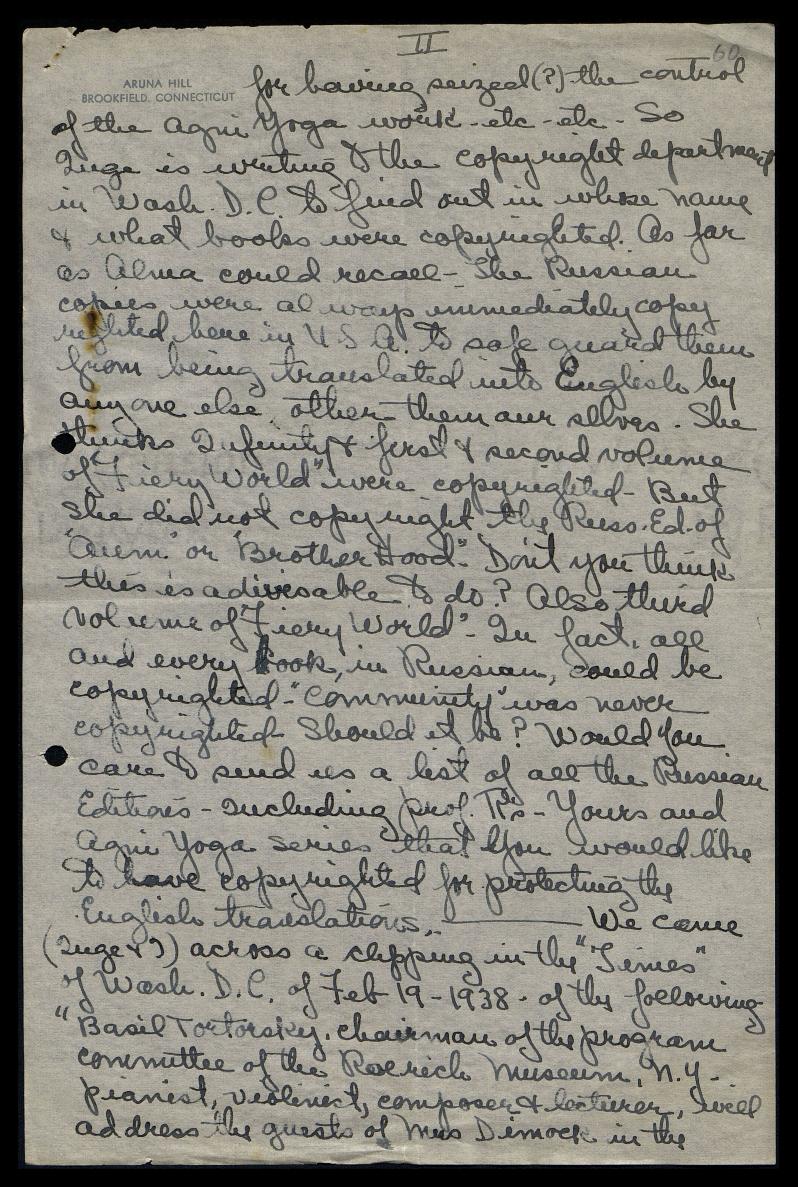 II
60
ARUNA HILL
BROOKFIELD, CONNECTICUT
for having seized (?) the control
of the Agni Yoga work - etc - etc - So
Inge is writing to the copyright department
in Wash. D.C. to find out in whose name
& what books were copyrighted. As far
as Alma could recall - the Russian
copies were always immediately copy
righted here in U.S.A. to safe guard them
from being translated into English by
any one else, other them our selves. She
thinks Infinity & first & second volume
of "Fiery World" were copyrighted - But
she did not copyright the Russ. Ed. of
"Aum" or "Brother Hood". Don't you think
this is adivesable to do? Also third
volume of "Fiery World" - In fact, all
and every book, in Russian, could be
copyrighted - "Community" was never
copyrighted - Should it be? Would You
care to send us a list of all the Russian
Editions - including prof. R's - Yours and
Agni Yoga series that You would like
to have copyrighted for protecting the
English translations. We came
(Inge & I) across a clipping in the "Times"
of Wash. D.C. of Feb 19 - 1938 - of the following
"Basil Tortorsky, chairman of the program
committee of the Roerich Museum, N.Y. -
pianist, violinist, composer & lecturer, will
address the guests of Mrs Dimock in the